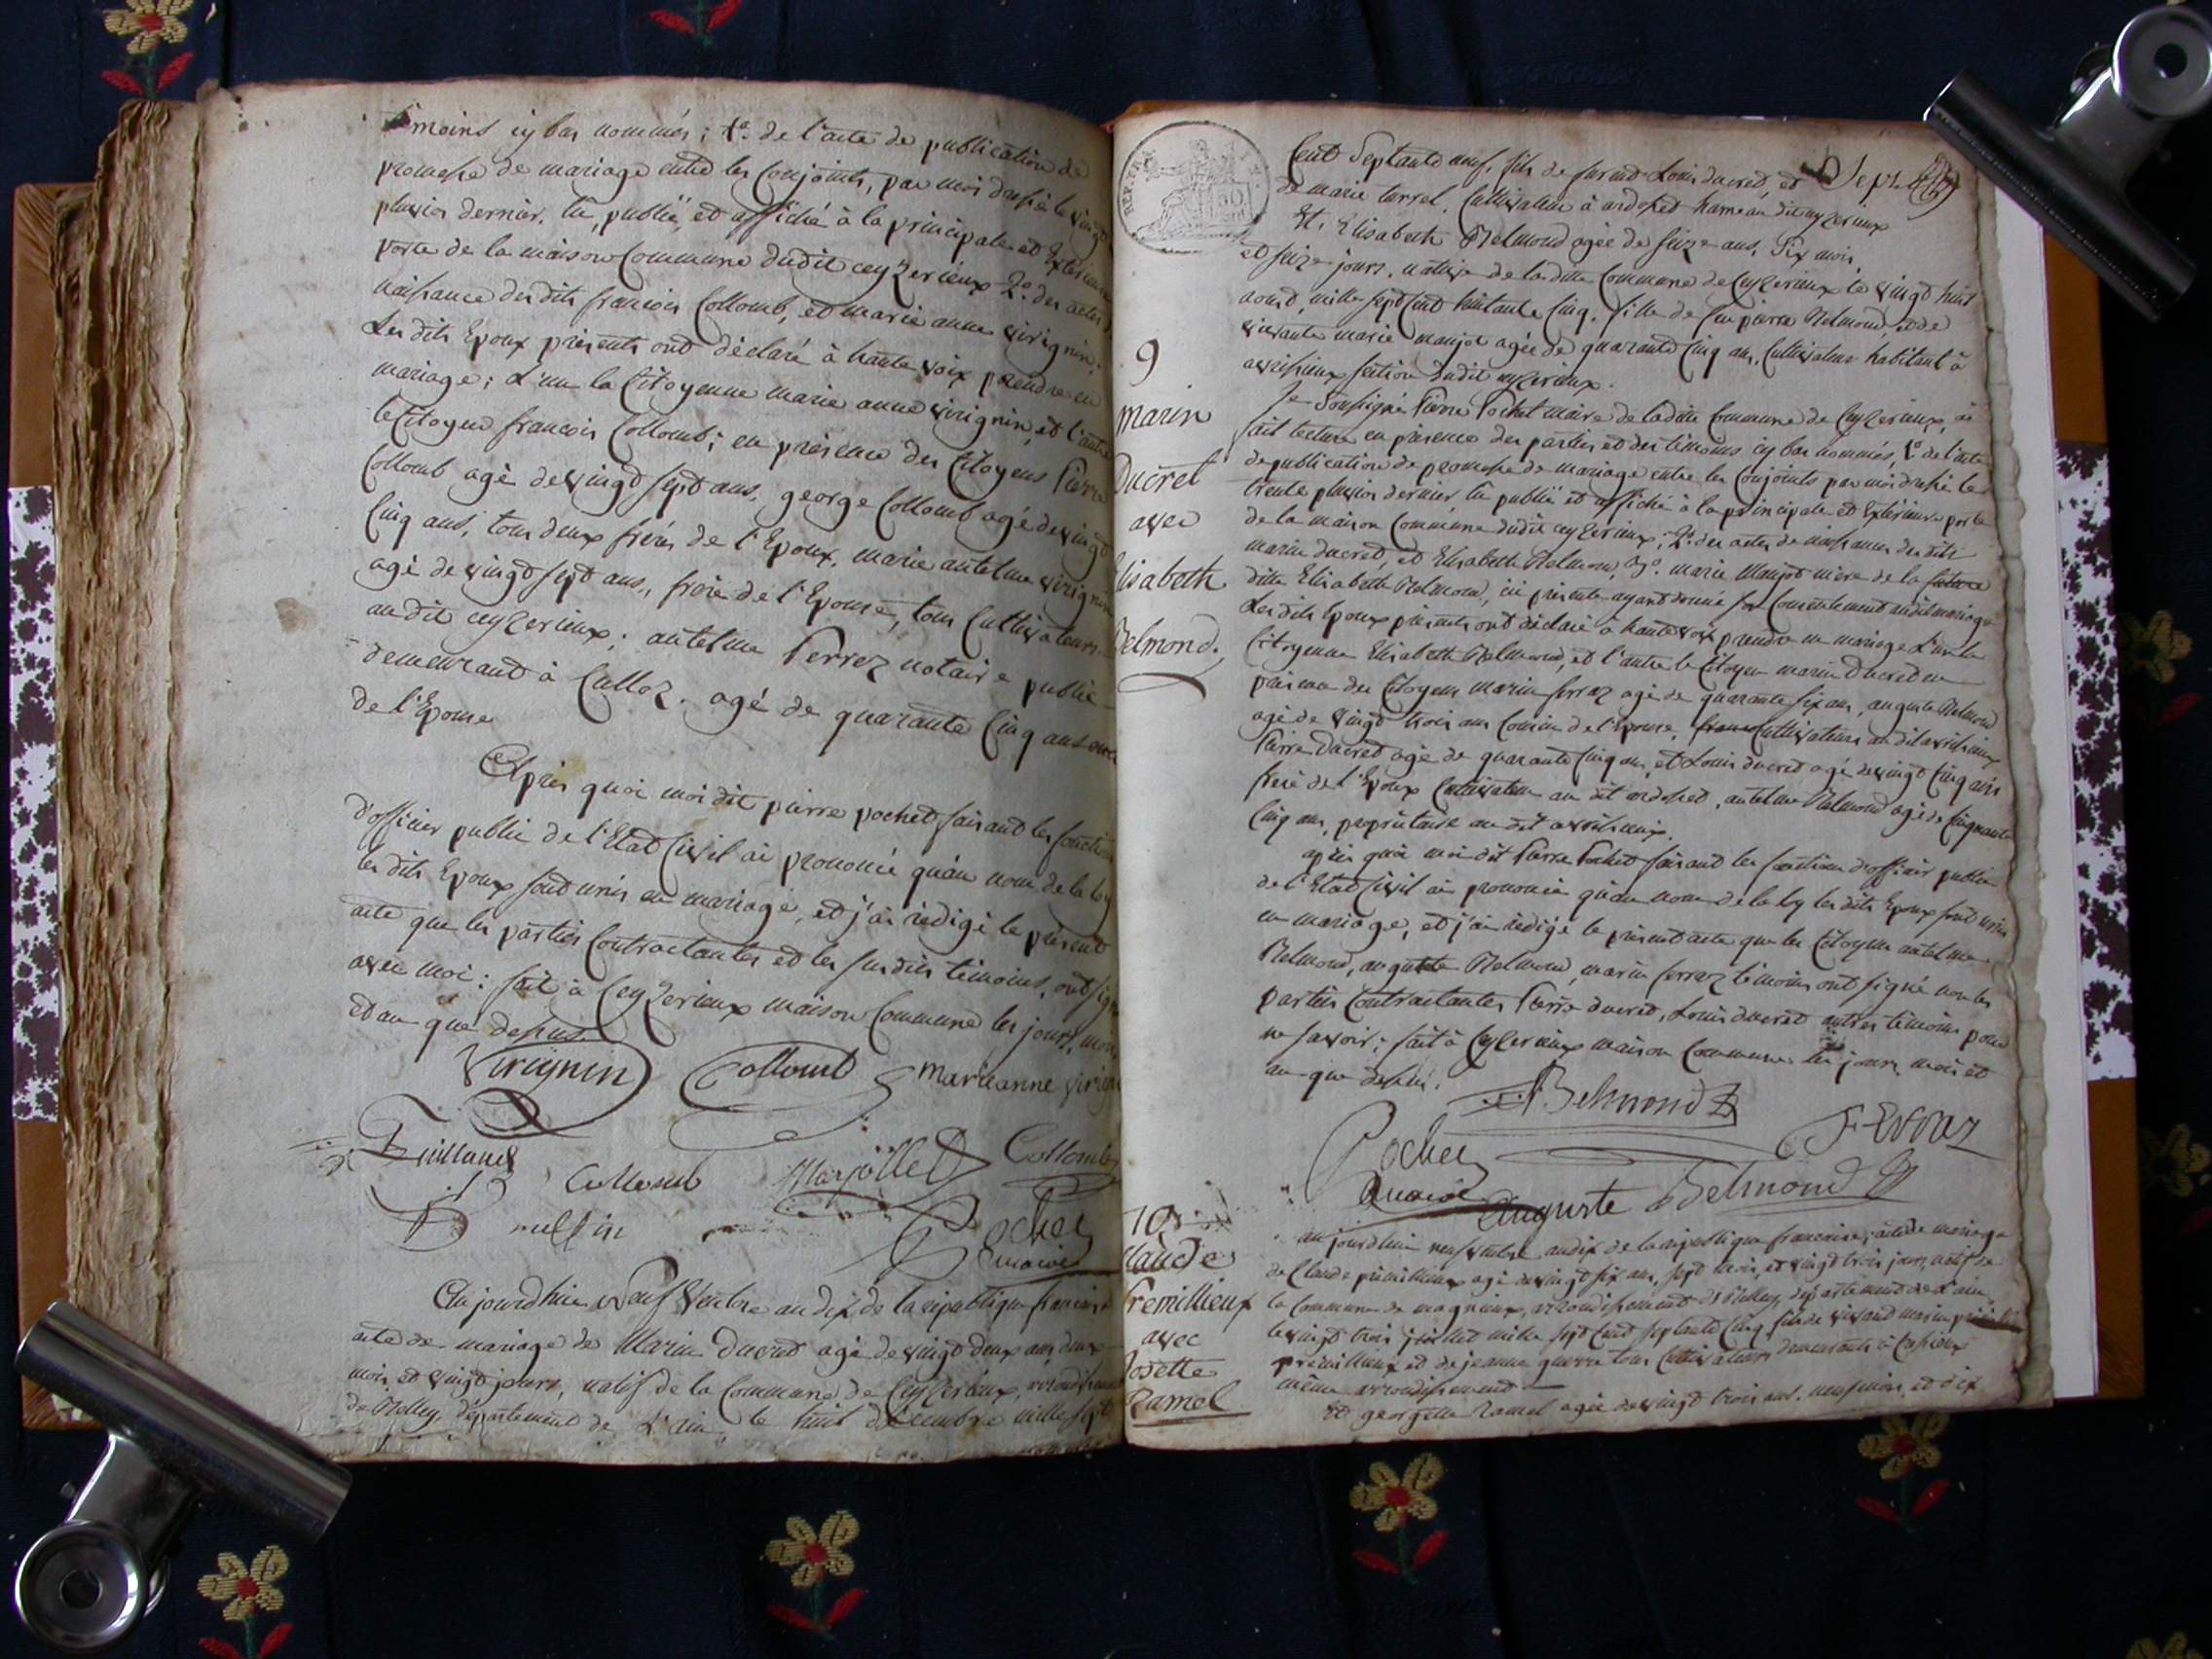 témoins cy bas nommés; 1º. de l'acte de publication de
promesse de mariage entre les Conjoints, par moi dressé le vingt
pluviose dernier, lû, publié, et affiché à la principale et Exterieure
porte de la maison Commune dudit ceyzerieux 2º. des actes de
naissance desdits francois Collomb, et marie anne virignin.
Lesdits Epoux présents ont déclaré à haute voix prendre en
mariage; L'un la Citoyenne marie anne virignin, et l'autre
le Citoyen francois Collomb; en présence des Citoyens Pierre
Collomb agé de vingt sept ans, george Collomb agé de vingt
Cinq ans, tous deux frères de l'Epoux, marie antelme virignin
agé de vingt sept ans, frere de l'Epouse, tous Cultivateurs
audit ceyzerieux; antelme Perrez notaire public
demeurant à Culloz. agé de quarante Cinq ans
de l'Epouse
Après quoi moi dit pierre pochet faisant les fonctions
d'officier public de l'Etat Civil ai prononcé qu'au nom de la loy
les dits Epoux sont unis en mariage, et j'ai rédigé le présent
acte que les parties Contractantes et les susdits témoins, ont signé
avec moi: fait à Ceyzerieux maison Commune les jours, mois
et an que dessus.
Virignin Collomb marieanne virignin
Collomb Marjollet Collomb
Pochet
maire
Aujourdhui Neuf Ventose an dix de la république francaise
acte de mariage de Marin Ducret agé de vingt deux ans, deux
mois et vingt jours, natif de la Commune de Ceyzerieux, arrondissement
de Belley, département de L'ain, le huit décembre mille sept
Cent Septante neuf, fils de furent Louis ducret, et
de marie turrel. Cultivateur à ardosset hameau dit ceyzerieux
Et, Elisabeth Belmond agée de seize ans, Six mois
et seize jours, native de la ditte Commune de Ceyzerieux le vingt huit
aout, mille sept cent huitante Cinq. fille de feu pierre Belmond et de
vivante marie manjot agée de quarante Cinq ans, Cultivateur habitant à
avrissieux section dudit ceyzerieux.
9
marin
Ducret
avec
Elisabeth
Belmond.
Je Soussigné Pierre Pochet maire de laditte Commune de Ceyzerieux, ai
fait lecture en présence des parties et des témoins cy bas nommés, 1º. de l'acte
de publication de promesse de mariage entre les Conjoints par moi dressé le
trente pluviose dernier lû publié et affiché à la principale et Extérieure porte
de la maison Commune dudit ceyzerieux; 2º. des actes de naissance desdits
marin ducret, et Elisabeth Belmond, 3º. marie Manjot mère de la future
ditte Elisabeth Belmond, ici présente ayant donné son Consentement audit mariage
Lesdits Epoux présents ont déclaré à haute voix prendre en mariage L'un la
Citoyenne Elisabeth Belmond, et l'autre le Citoyen marin Ducret en
présence des Citoyens marin ferraz agé de quarante six ans, auguste Belmond
agé de vingt trois ans Cousin de l'Epouse, Cultivateurs audit avrissieux
Pierre Ducret agé de quarante Cinq ans, et Louis ducret agé de vingt Cinq ans
frere de l'Epoux Cultivateur au dit ardosset, antelme Belmond agé de Cinquante
Cinq ans, propriétaire au dit avrissieux.
après quoi moi dit Pierre Pochet faisant les fonctions d'officier public
de l'Etat Civil ai prononcé qu'au nom de la loy les dits Epoux sont unis
en mariage, et j'ai rédigé le présent acte que les Citoyens antelme
Belmond, auguste Belmond, marin ferraz témoins ont signé non les
parties Contractantes Pierre ducret, Louis ducret autres témoins pour
ne savoir; fait à Ceyzerieux maison Commune les jours, mois et
an que dessus.
Belmond
Pochet Ferraz
maire auguste Belmond
10
Claude
Premillieux
avec
Josette
Ramel
aujourdhui neuf ventose an dix de la république francaise; acte de mariage
de Claude prémillieux agé de vingt six ans, sept mois, et vingt trois jours, natif de
la Commune de magnieux, arrondissement de Belley, département de L'ain,
le vingt trois juillet mille sept Cent septante Cinq, fils de vivant marin
premillieux et de jeanne guerre tous Cultivateurs demeurants à
même arrondissement
Et georgette Ramel agée de vingt trois ans, neuf mois, et dix